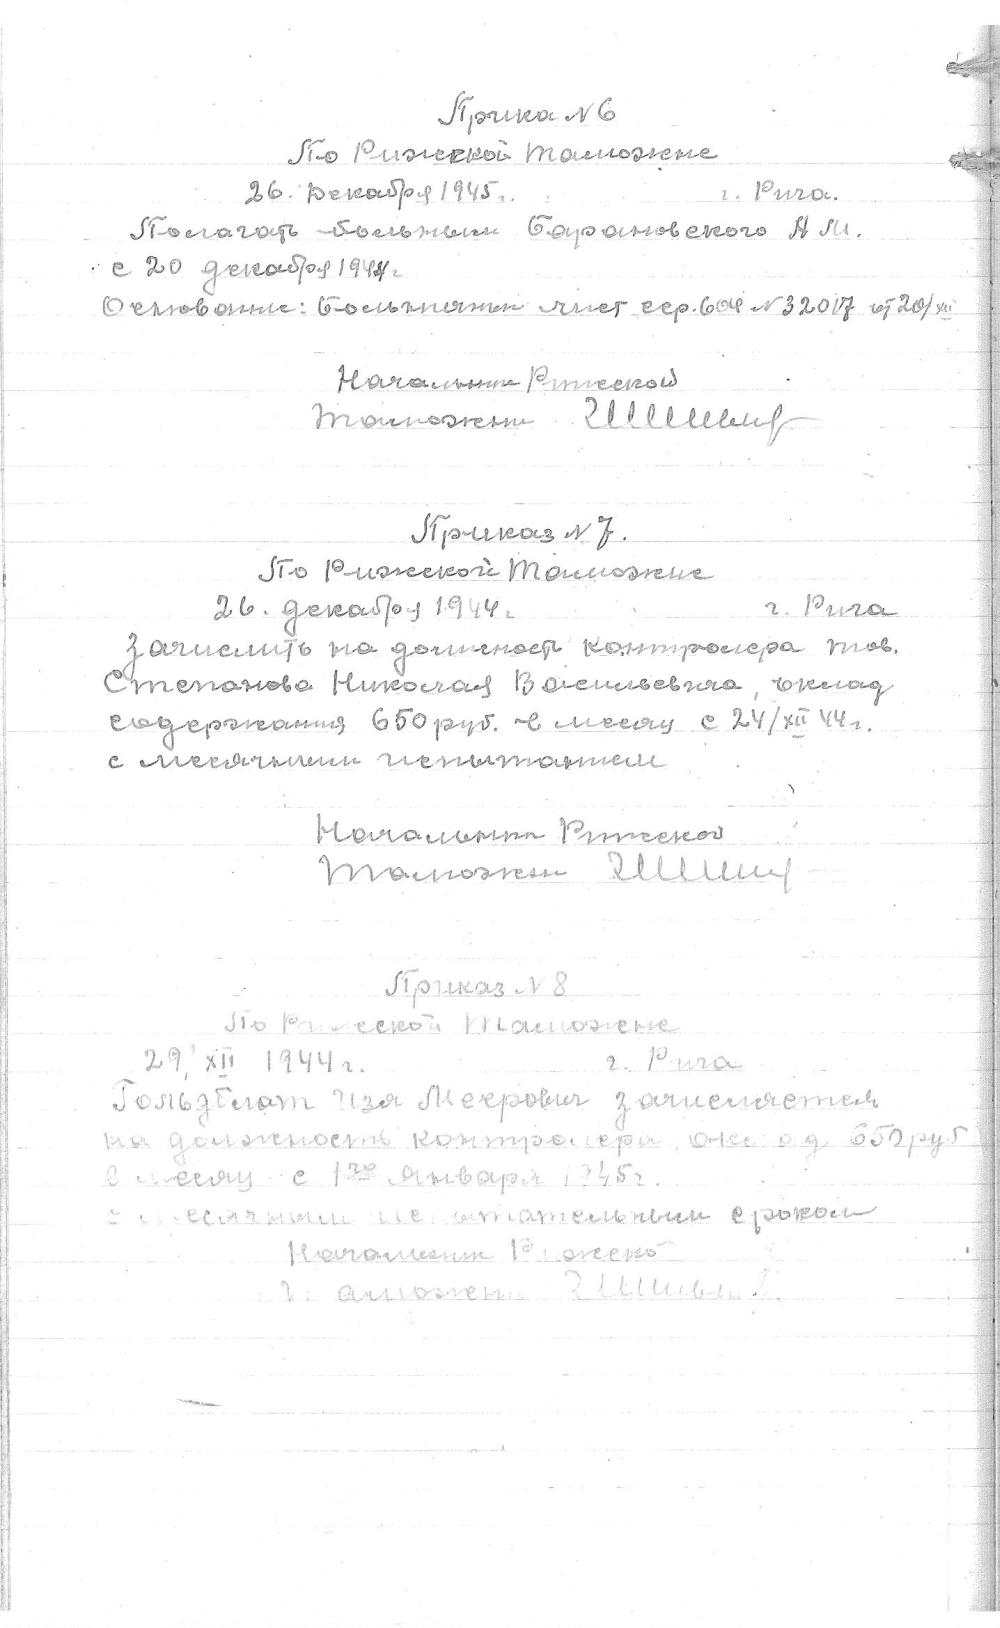 Прика N 6
По Рижской Таможне
26. Декабря 1945г. г. Рига.
Полагать больным Барановского А М.
с 20 декабря 1944г
Основание: Больничный лист сер. N 32017 от 20/XII
Начальник Рижской
Таможни
Приказ N 7.
По Рижской Таможне
26. декабря 1944г. г. Рига
Зачислить на должность контролера тов.
Степанова Николая Васильевича, оклад
содержания 650 руб. в месяц с 24/XII 44г.
с месячным испытанием
Начальник Рижской
Таможни
Приказ N 8
По Рижской Таможне
29, XII 1944г. г. Рига
Гольдблат Изя Меерович зачисляется
на должность контролера, оклад 650 руб
в месяц с 1го Января 1945г.
с месячным испытательным сроком
Начальник Рижской
Таможни